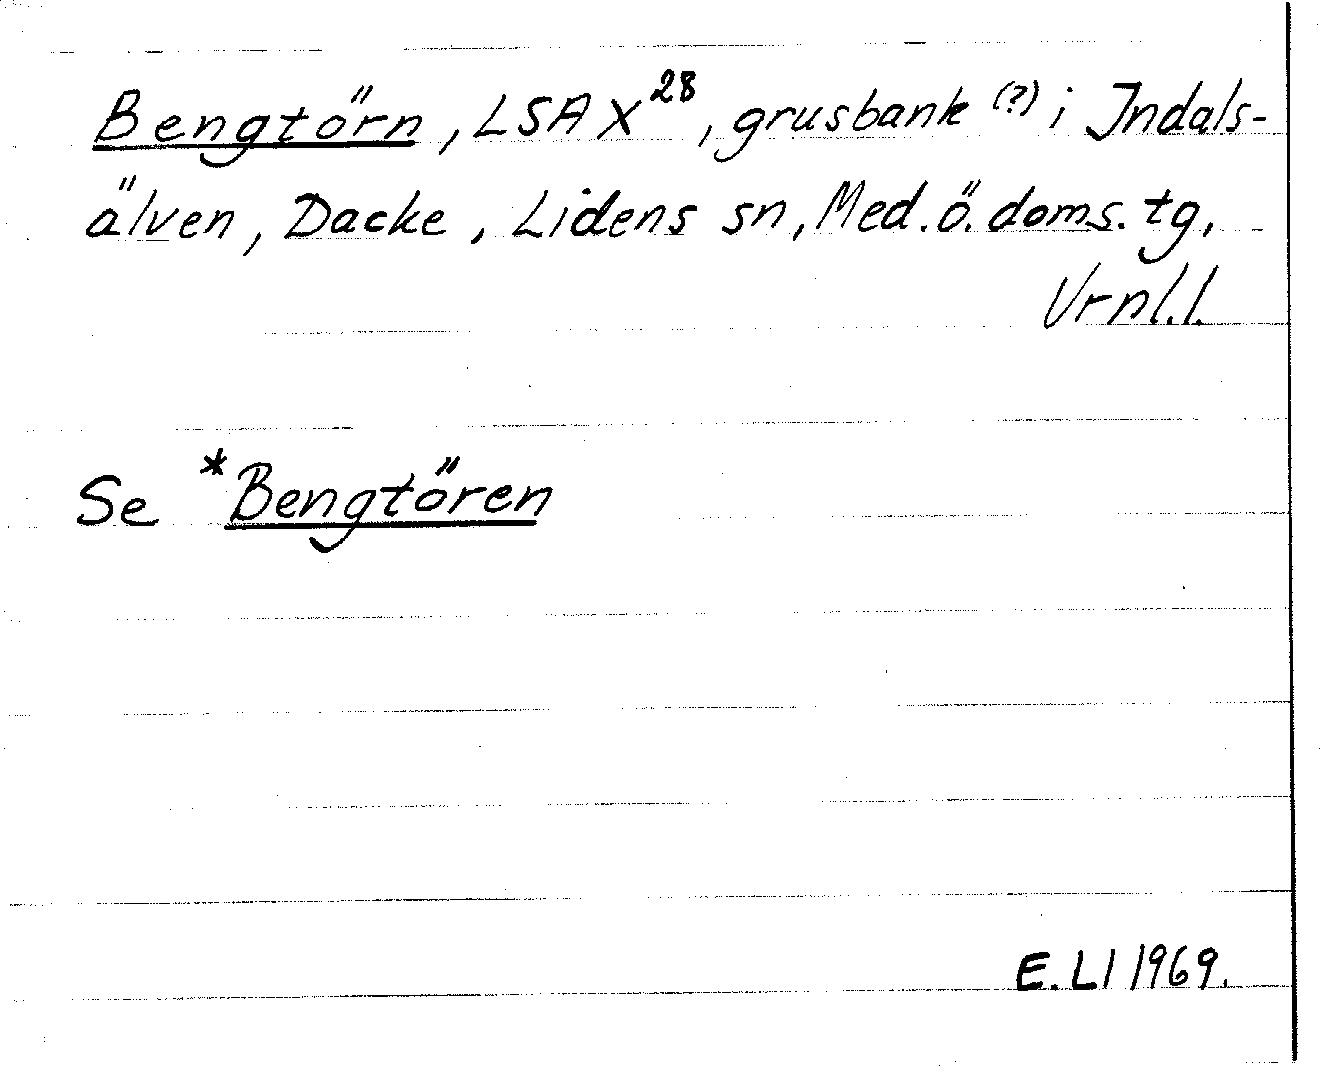 Bengtörn, LSA X28, grusbank (?) i Indals-
älven, Dacke, Lidens sn, Med. ö. doms. tg,
Vrnl.l.
Se *Bengtören
E. Ll 1969.